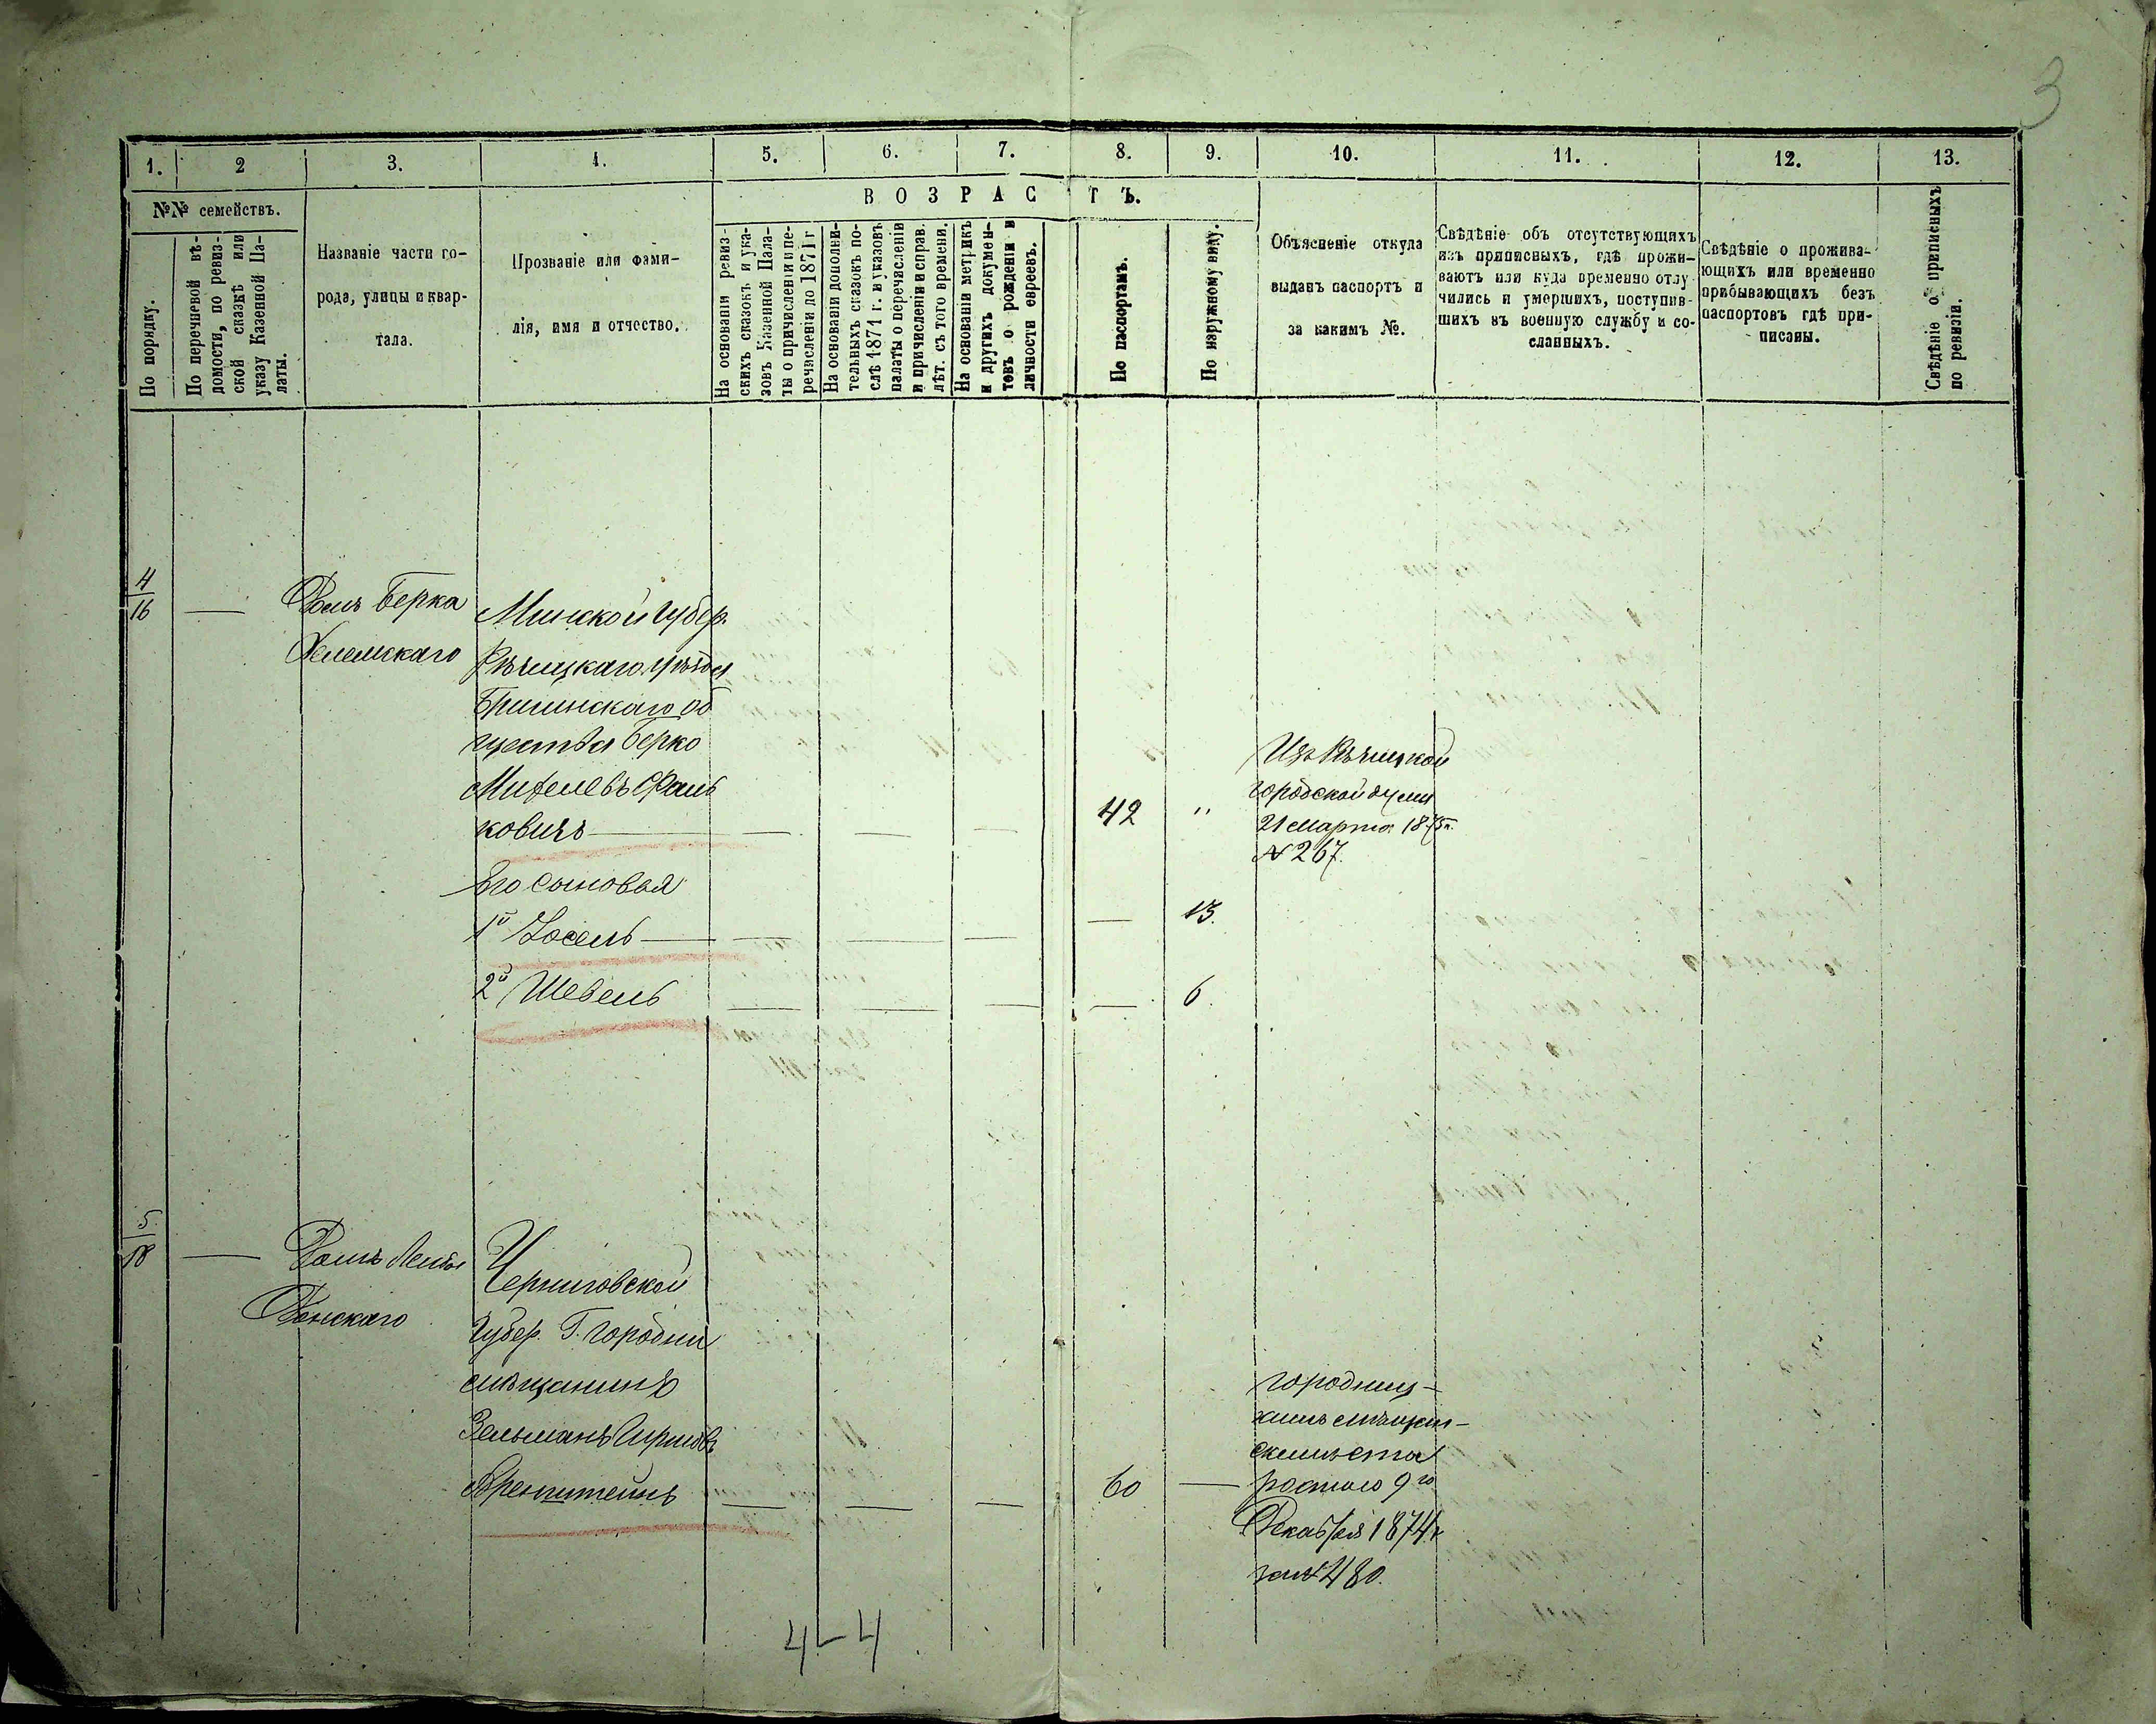 3
1. 2 3. 4. 5. 6. 7. 8. 9. 10. 11. 12. 13.
№№ семействъ.
По порядку.
По перечневой вѣ-
домости, по ревиз-
ской сказкѣ или
указу Казенной Па-
латы.
Названіе части го-
рода, улицы и квар-
тала.
Прозваніе или фами-
лія, имя и отчество.
ВОЗРАСТЪ.
На основаніи ревиз-
скихъ сказокъ и ука-
зовъ Казенной Пала-
ты о причисленіи и пе-
речисленіи до 1871 г
На основаніи дополни-
тельныхъ сказокъ по-
слѣ 1871 г. и указовъ
палаты о перечисленіи
и причисленіи и справ.
лѣт. съ того времени.
На основаніи метрикъ
и другихъ докумен-
товъ о рожденіи и
личности евреевъ.
По паспортамъ.
По наружному виду.
Объясненіе откуда
выданъ паспортъ и
за какимъ №.
Свѣдѣніе объ отсутствующихъ
изъ приписныхъ, гдѣ прожи-
ваютъ или куда временно отлу-
чились и умершихъ, поступив-
шихъ въ военную службу и со-
сланныхъ.
Свѣдѣніе о прожива-
ющихъ или временно
прибывающихъ безъ
паспортовъ гдѣ при-
писаны.
Свѣдѣніе о приписныхъ
по ревизіи.
4
16
—
Домъ Берка
Минской губер.
Рѣчицкаго уѣзда
Брагинскаго об
щества Берко
ковичъ —
42 "
Изъ Рѣчицкой
городской думы
21 марта 1875г.
№ 267.
Его сыновья
1й Іосель — — — — — 13.
2й Шевель — — — — 6.
5
18
—
Домъ
Черниговской
губер. Г. Городни
мѣщанинъ
Зельманъ Гиршовъ
Аренштейнъ — — — 60 —
Городниц-
кимъ мѣщан-
скимъ ста
ростою 9го
Декабря 1874г
за № 480.
4-4